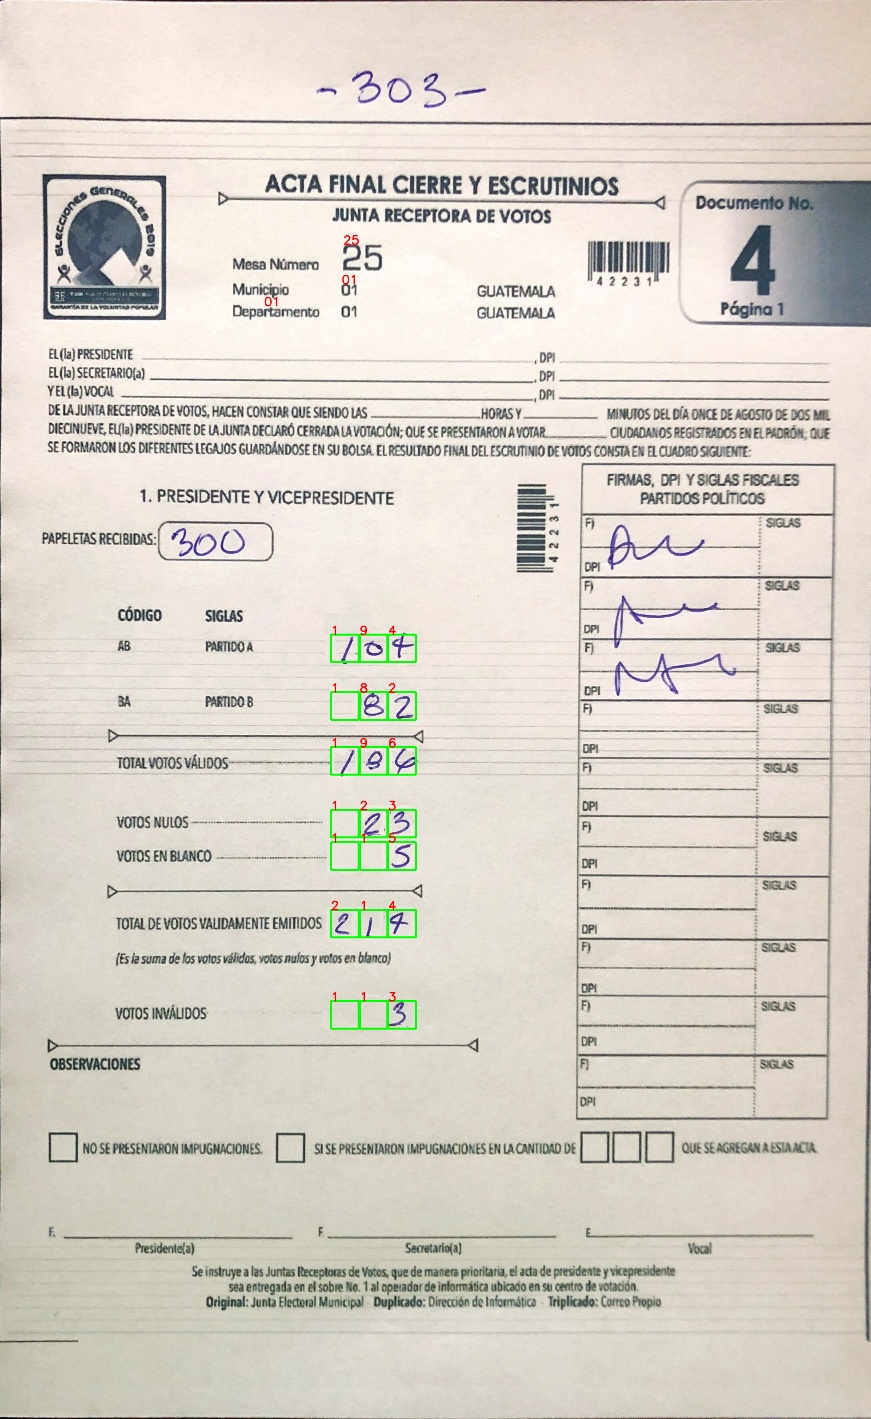 -303-
ELECCIONES GENERALES 2019
GARANTÍA DE LA VOLUNTAD POPULAR
ACTA FINAL CIERRE Y ESCRUTINIOS
JUNTA RECEPTORA DE VOTOS
Documento No.
4
Página 1
25
Mesa Número 25
01
Municipio 01 GUATEMALA
01
Departamento 01 GUATEMALA
42231
EL (la) PRESIDENTE , DPI
EL (la) SECRETARIO(a) , DPI
Y EL (la) VOCAL , DPI
DE LA JUNTA RECEPTORA DE VOTOS, HACEN CONSTAR QUE SIENDO LAS HORAS Y MINUTOS DEL DÍA ONCE DE AGOSTO DE DOS MIL
DIECINUEVE, EL(la) PRESIDENTE DE LA JUNTA DECLARÓ CERRADA LA VOTACIÓN; QUE SE PRESENTARON A VOTAR CIUDADANOS REGISTRADOS EN EL PADRÓN; QUE
SE FORMARON LOS DIFERENTES LEGAJOS GUARDÁNDOSE EN SU BOLSA. EL RESULTADO FINAL DEL ESCRUTINIO DE VOTOS CONSTA EN EL CUADRO SIGUIENTE:
1. PRESIDENTE Y VICEPRESIDENTE
PAPELETAS RECIBIDAS: 300
42231
CÓDIGO SIGLAS
1 9 4
AB PARTIDO A 104
1 8 2
BA PARTIDO B 82
1 9 6
TOTAL VOTOS VÁLIDOS 186
1 2 3
VOTOS NULOS 23
1 1 5
VOTOS EN BLANCO 5
2 1 4
TOTAL DE VOTOS VALIDAMENTE EMITIDOS 214
(Es la suma de los votos válidos, votos nulos y votos en blanco)
1 1 3
VOTOS INVÁLIDOS 3
OBSERVACIONES
FIRMAS, DPI Y SIGLAS FISCALES
PARTIDOS POLÍTICOS
F) SIGLAS
DPI
F) SIGLAS
DPI
F) SIGLAS
DPI
F) SIGLAS
DPI
F) SIGLAS
DPI
F) SIGLAS
DPI
F) SIGLAS
DPI
F) SIGLAS
DPI
F) SIGLAS
DPI
F) SIGLAS
DPI
NO SE PRESENTARON IMPUGNACIONES. SI SE PRESENTARON IMPUGNACIONES EN LA CANTIDAD DE QUE SE AGREGAN A ESTA ACTA.
F. F. F.
Presidente(a) Secretario(a) Vocal
Se instruye a las Juntas Receptoras de Votos, que de manera prioritaria, el acta de presidente y vicepresidente
sea entregada en el sobre No. 1 al operador de informática ubicado en su centro de votación.
Original: Junta Electoral Municipal Duplicado: Dirección de Informática Triplicado: Correo Propio